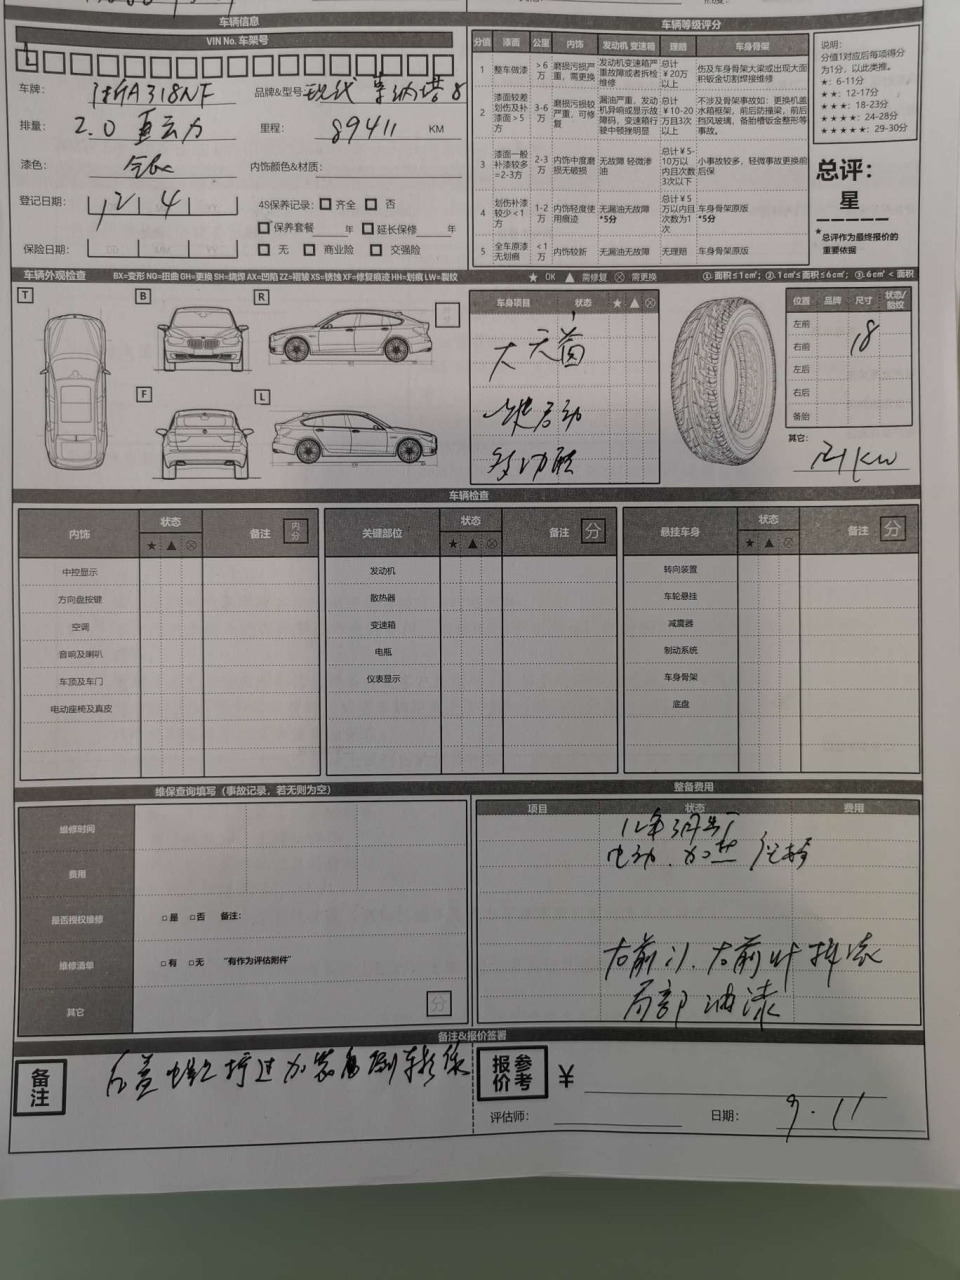 车辆信息
VIN No. 车架号
车牌: 浙A318NF 品牌&型号: 现代 索纳塔8
排量: 2.0 里程: 89411 KM
漆色: 内饰颜色&材质:
登记日期: 12 4 4S保养记录: 齐全 否
保养套餐 年 延长保修 年
保险日期: 无 商业险 交强险
车辆等级评分
分值 漆面 公里 内饰 发动机 变速箱 理赔 车身骨架
1 整车做漆 >6万 磨损污损严重，需更换 发动机变速箱严重故障或者拆检维修 总计￥20万以上 伤及车身骨架大梁或出现大面积钣金切割焊接维修
2 漆面较差划伤及补漆面>5方 3-6万 磨损污损较严重，可修复 漏油严重，发动机异响或显示故障码，变速箱行驶中顿挫明显 总计￥10-20万且3次以上 不涉及骨架事故如：更换机盖水箱框架，前后防撞梁，前后挡风玻璃，备胎槽钣金整形等事故。
3 漆面一般补漆较多=2-3方 2-3万 内饰中度磨损无破损 无故障 轻微渗油 总计￥5-10万以内且次数3次以下 小事故较多，轻微事故更换前后保
4 划伤补漆较少<1方 1-2万 内饰轻度使用痕迹 无漏油无故障*5分 总计￥5万以内且次数为1次 车身骨架原版*5分
5 全车原漆无划痕 <1万 内饰较新 无漏油无故障 无理赔 车身骨架原版
说明:
分值1对应后每项得分为1分，以此类推。
★: 6-11分
★★: 12-17分
★★★: 18-23分
★★★★: 24-28分
★★★★★: 29-30分
总评:
星
*总评作为最终报价的重要依据
车辆外观检查 BX=变形 NQ=扭曲 GH=更换 SH=烧焊 AX=凹陷 ZZ=褶皱 XS=锈蚀 XF=修复痕迹 HH=划痕 LW=裂纹 ★ OK ▲ 需修复 ⊗ 需更换 ①. 面积≤1c㎡; ②. 1c㎡≤面积≤6c㎡; ③. 6c㎡<面积
T B R
F L
车身项目 状态 ★ ▲ ⊗
大天窗
一键启动
多功能
位置 品牌 尺寸 状态/胎纹
左前
右前 18
左后
右后
备胎
其它: 121kw
车辆检查
内饰 状态 备注 内分
★ ▲ ⊗
中控显示
方向盘按键
空调
音响及喇叭
车顶及车门
电动座椅及真皮
关键部位 状态 备注 分
★ ▲ ⊗
发动机
散热器
变速箱
电瓶
仪表显示
悬挂车身 状态 备注 分
★ ▲ ⊗
转向装置
车轮悬挂
减震器
制动系统
车身骨架
底盘
维保查询填写（事故记录，若无则为空）
维修时间
费用
是否授权维修 □是 □否 备注:
维修清单 □有 □无 “有作为评估附件”
其它 分
整备费用
项目 状态 费用
12年3月出厂
电动.加热 座椅
右前门.右前叶掉漆
局部油漆
备注&报价签署
备注
参考报价 ￥
评估师: 日期: 9.11